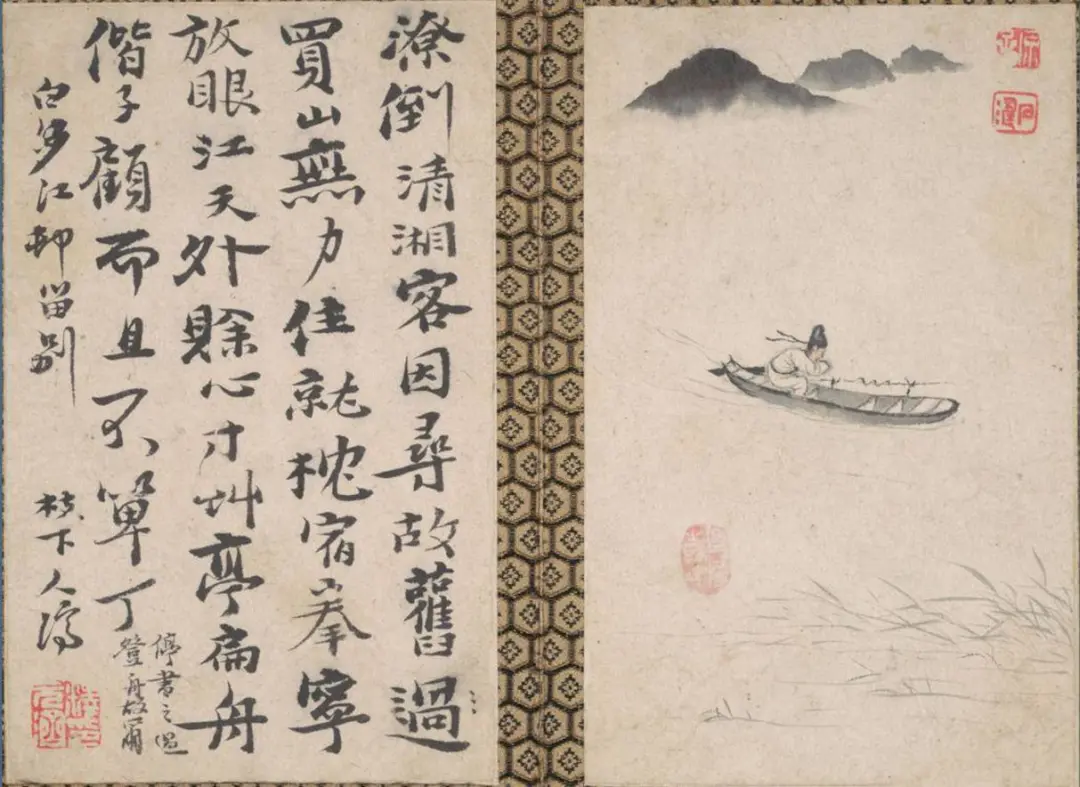 潦倒清湘客因尋故舊過
買山無力住就枕宿拳寧
放眼江天外賒心寸艸亭扁舟
偕子顧而且不單丁
停君之過
登舟故爾
白沙江邨留別
枝下人濟